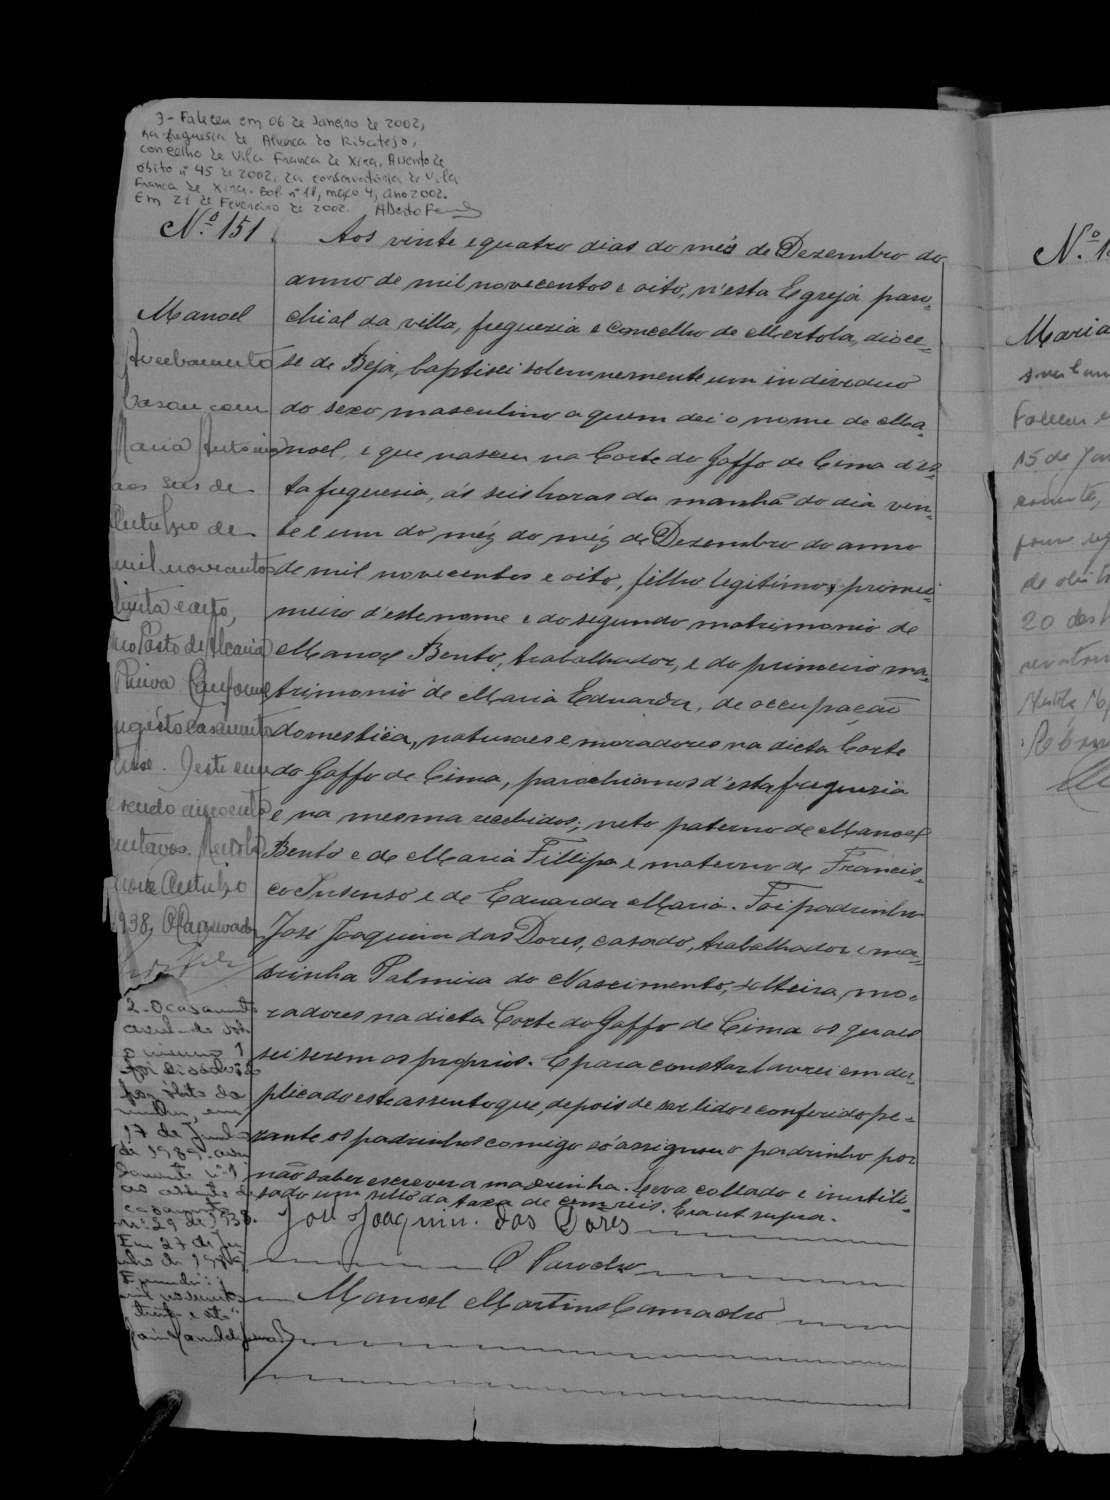 3 - Faleceu em 06 de Janeiro de 2002,
na freguesia de Alverca do Ribatejo,
concelho de Vila Franca de Xira. Assento de
óbito nº 45 de 2002, da conservatória de Vila
Franca de Xira. Bol nº 11, maço 4, ano 2002.
Em 21 de Fevereiro de 2002.
Nº 151
Manoel
Aos vinte e quatro dias do més de Dezembro do
anno de mil novecentos e oito, n'esta Egreja paro=
chial da villa, freguezia e concelho de Mertola, dioce=
se de Beja, baptisei solemnemente um individuo
do sexo masculino a quem dei o nome de Ma=
noel, e que nasceu na Corte do Gaffo de Cima d'es=
ta freguezia, ás seis horas da manhã do dia vin=
te e um do méz do méz de Dezembro do anno
de mil novecentos e oito, filho legitimo, primei=
meiro d'este nome e do segundo matrimonio de
Manoel Bento, trabalhador, e do primeiro ma=
trimonio de Maria Eduarda, de occupação
domestica, naturaes e moradores na dicta Corte
do Gaffo de Cima, parochianos d'esta freguezia
e na mesma recebidos; neto paterno de Manoel
Bento e de Maria Fillipa e materno de Francis=
co e de Eduarda Maria. Foi padrinho
José Joaquim das Dores, casado, trabalhador e ma=
drinha Palmira do Nascimento, solteira, mo=
radores na dicta Corte do Gaffo de Cima os quaes
sei serem os proprios. E para constar lavrei em du=
plicado este assento que, depois de ser lido e conferido pe=
rante os padrinhos comigo só assignou o padrinho por
não saber escrever a madrinha. Leva collado e inutili=
sado um sello da taxa de cem reis. Era ut supra.
José Joaquim das Dores
O Parocho
Manoel Martins Camacho
casou com
Maria Antónia
aos seis de
Outubro de
mil novecentos
trinta e oito,
no Posto de Alcaria
Ruiva. Conforme
registo casamento
Outubro
1938, O
2 - O casamento
foi dissolvido
por óbito da
mulher, em
17 de
de 1989,
casamento
nº 29 de 1938.
Em 27 de
Nº 1
Maria
Faleceu
15 de
20